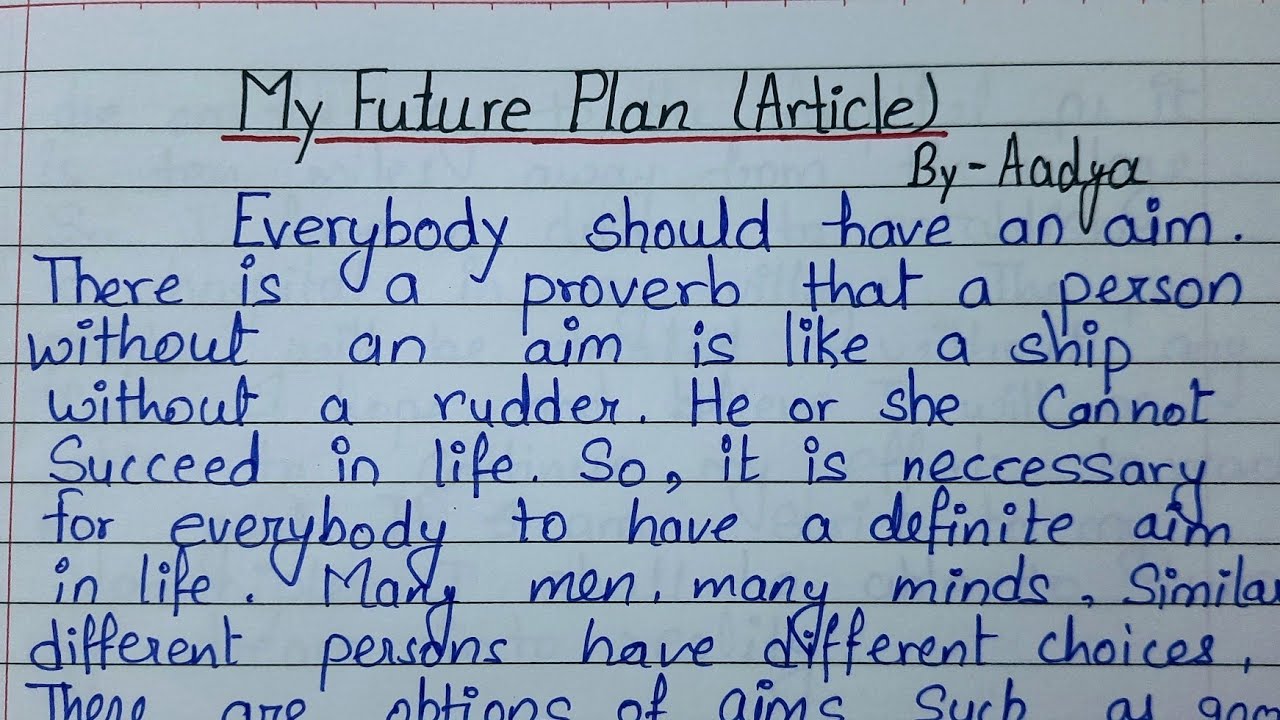 My Future Plan (Article)
By-Aadya
Everybody should have an aim.
There is a proverb that a person
without an aim is like a ship
without a rudder. He or she Cannot
Succeed in life. So, it is neccessary
for everybody to have a definite aim
in life. Many men, many minds, Similar
different persons have different choices,
There are options of aims Such as